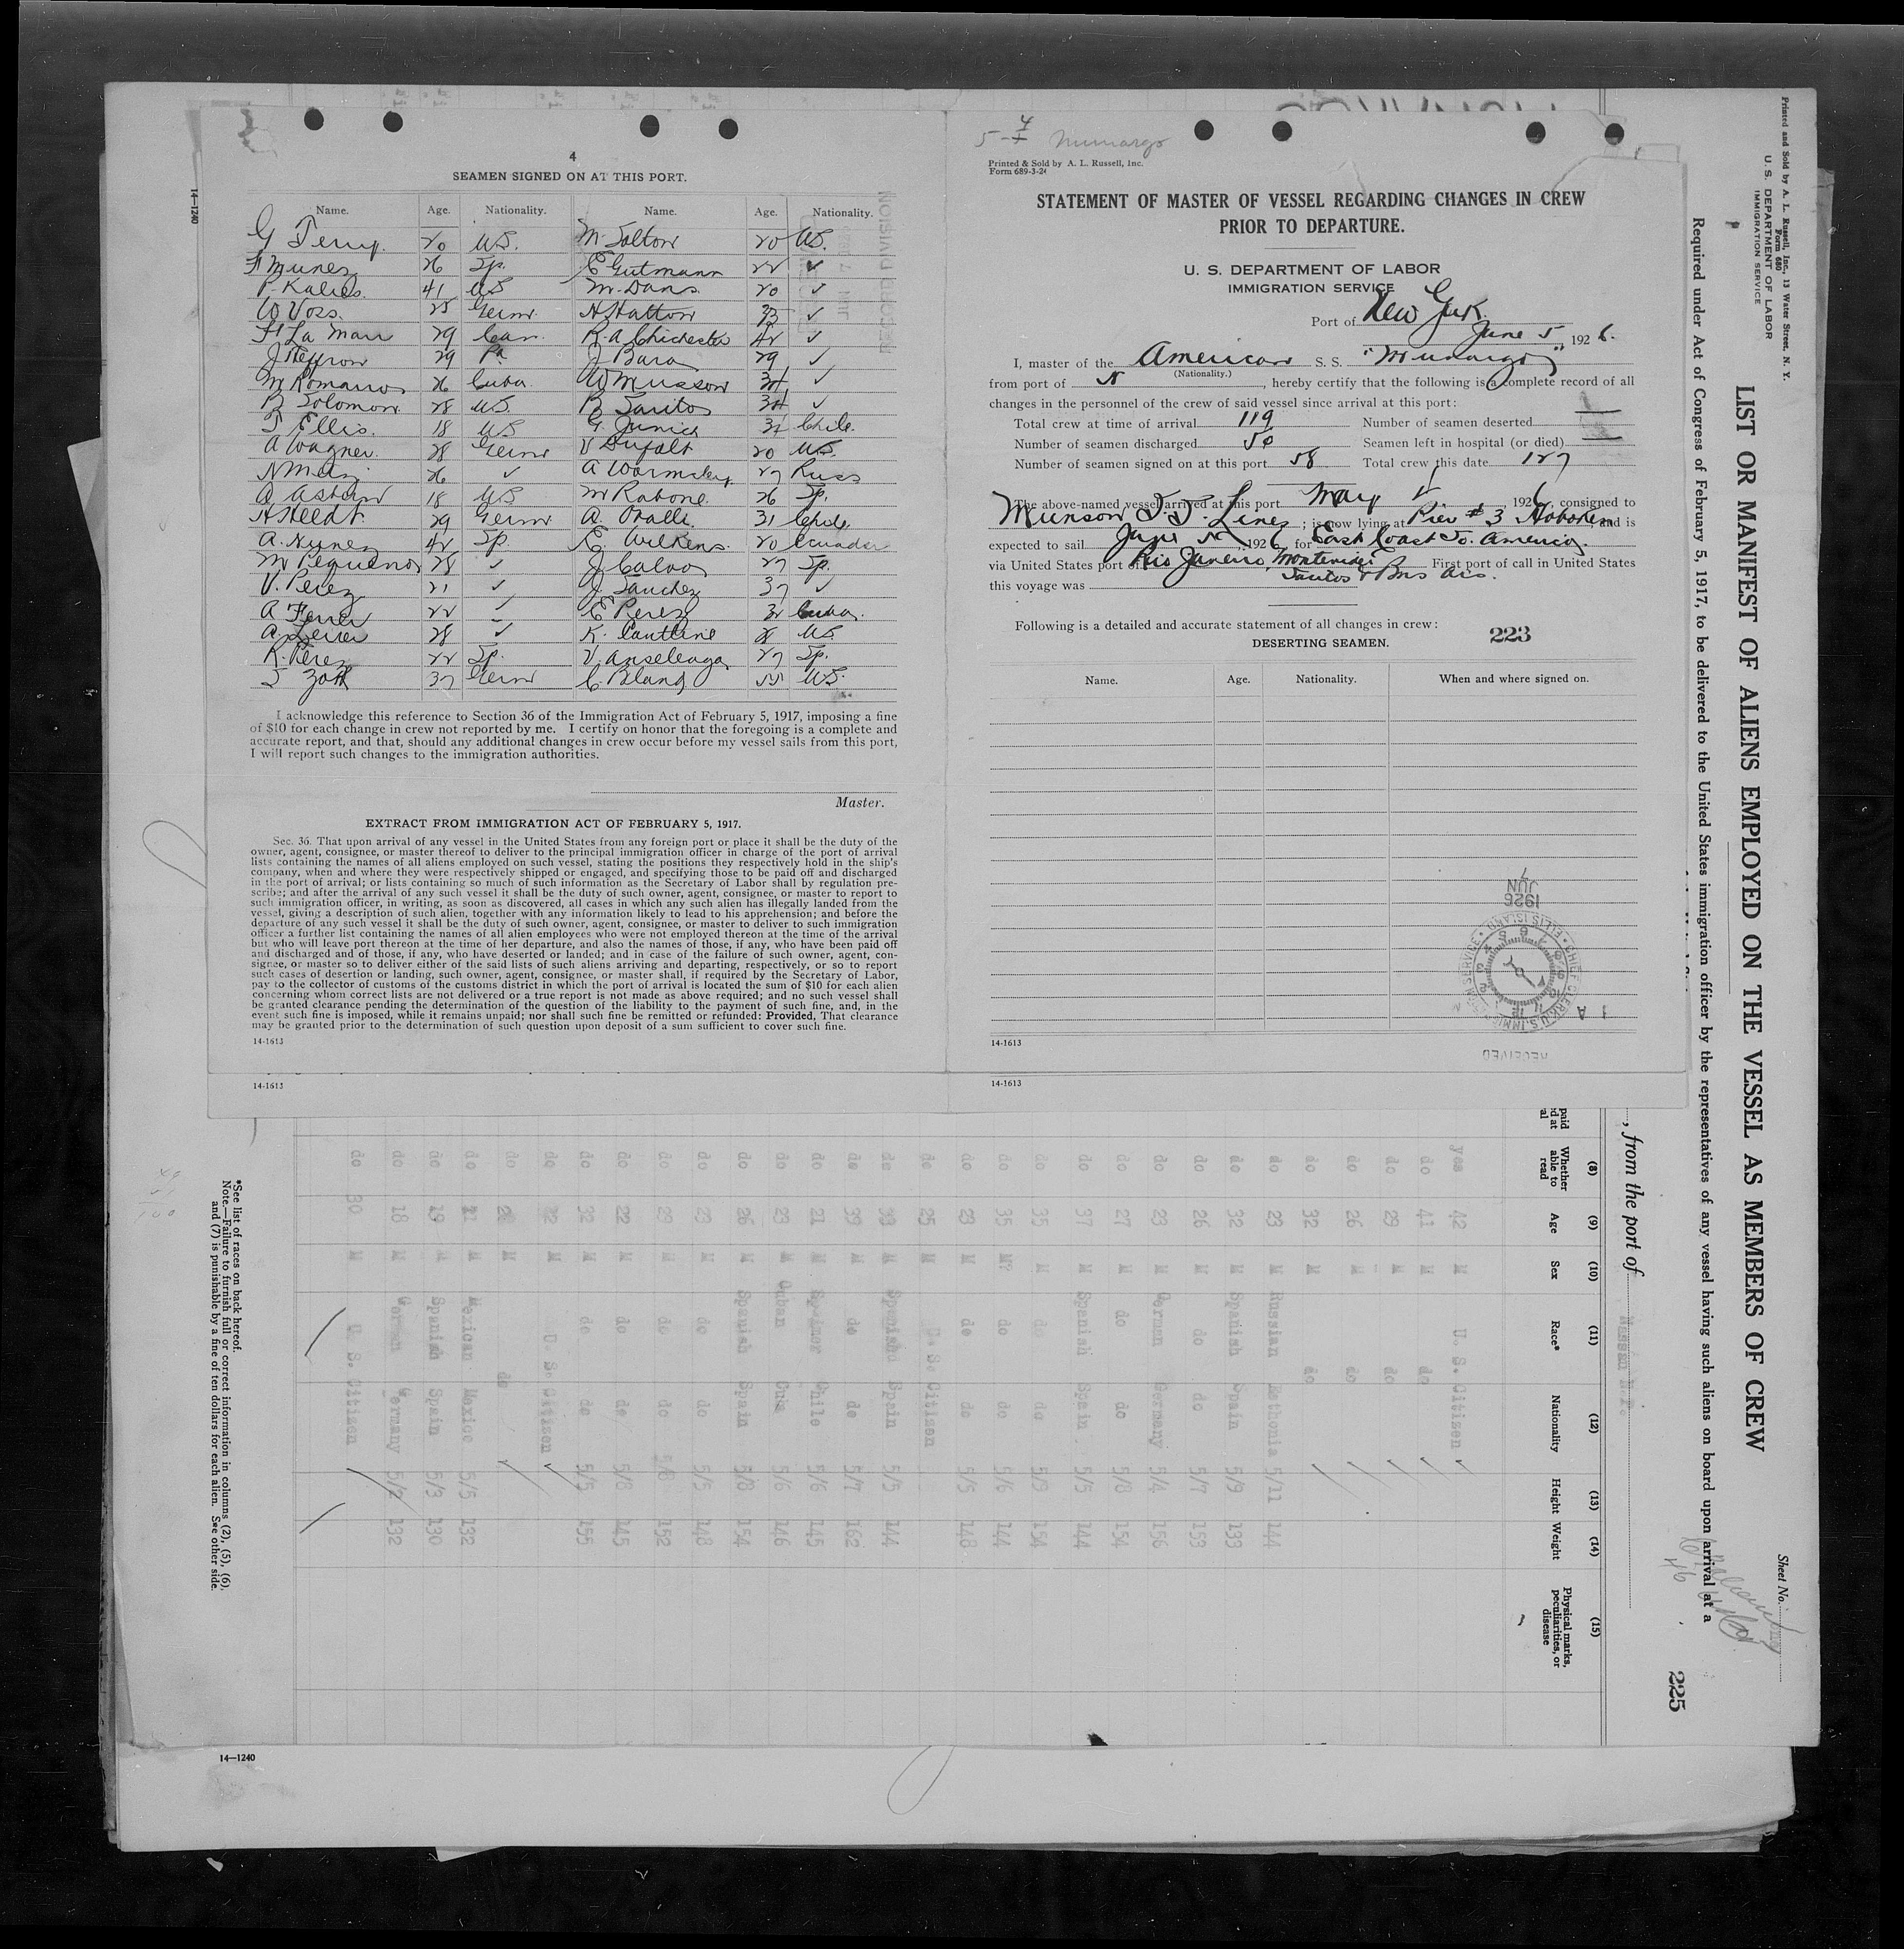 4
SEAMEN SIGNED ON AT THIS PORT.
Name. Age. Nationality. Name. Age. Nationality.
G Terry. 20 U.S. M. Solton 20 U.S.
F Munez 26 Sp. E Gutmann 22 ✓
P. Kalies. 41 US M. Dans. 20 ✓
W Voss. 25 Germ H Hatton 33 ✓
F La Marr 29 Can. R. A Chichester 42 ✓
J Heffron 29 Pa J Bara 29 ✓
M Romanos 26 Cuba. W Musson 34 ✓
B Solomon. 28 U.S. B Santos 34 ✓
T Ellis. 18 US G. Junica 31 Chile.
A Wagner. 28 Germ V Dufalt 20 U.S.
N 26 ✓ A 27 Russ
A 18 U.S M Rabone. 26 Sp.
H Steedt. 29 Germ A. Ovalle. 31 Chile.
A. Nunez 42 Sp. E. Wilkens. 20 Ecuador
M Pequenos 28 ✓ J Calvos 27 Sp.
V. Perez 21 ✓ J Sanchez 37 ✓
A Ferrer 22 ✓ E Perez 32 Cuba.
A 28 ✓ K. 28 U.S
R. Perez 22 Sp. V. 27 Sp.
T 37 Germ C. Bland 55 U.S.
I acknowledge this reference to Section 36 of the Immigration Act of February 5, 1917, imposing a fine
of $10 for each change in crew not reported by me. I certify on honor that the foregoing is a complete and
accurate report, and that, should any additional changes in crew occur before my vessel sails from this port,
I will report such changes to the immigration authorities.
Master.
EXTRACT FROM IMMIGRATION ACT OF FEBRUARY 5, 1917.
Sec. 36. That upon arrival of any vessel in the United States from any foreign port or place it shall be the duty of the
owner, agent, consignee, or master thereof to deliver to the principal immigration officer in charge of the port of arrival
lists containing the names of all aliens employed on such vessel, stating the positions they respectively hold in the ship's
company, when and where they were respectively shipped or engaged, and specifying those to be paid off and discharged
in the port of arrival; or lists containing so much of such information as the Secretary of Labor shall by regulation pre-
scribe; and after the arrival of any such vessel it shall be the duty of such owner, agent, consignee, or master to report to
such immigration officer, in writing, as soon as discovered, all cases in which any such alien has illegally landed from the
vessel, giving a description of such alien, together with any information likely to lead to his apprehension; and before the
departure of any such vessel it shall be the duty of such owner, agent, consignee, or master to deliver to such immigration
officer a further list containing the names of all alien employees who were not employed thereon at the time of the arrival
but who will leave port thereon at the time of her departure, and also the names of those, if any, who have been paid off
and discharged and of those, if any, who have deserted or landed; and in case of the failure of such owner, agent, con-
signee, or master so to deliver either of the said lists of such aliens arriving and departing, respectively, or so to report
such cases of desertion or landing, such owner, agent, consignee, or master shall, if required by the Secretary of Labor,
pay to the collector of customs of the customs district in which the port of arrival is located the sum of $10 for each alien
concerning whom correct lists are not delivered or a true report is not made as above required; and no such vessel shall
be granted clearance pending the determination of the question of the liability to the payment of such fine, and, in the
event such fine is imposed, while it remains unpaid; nor shall such fine be remitted or refunded: Provided, That clearance
may be granted prior to the determination of such question upon deposit of a sum sufficient to cover such fine.
14-1613
14-1613
RECORD DIVISION
14-1240
5-7 Munargo
Printed & Sold by A. L. Russell, Inc.
Form 689-3-24
STATEMENT OF MASTER OF VESSEL REGARDING CHANGES IN CREW
PRIOR TO DEPARTURE.
U. S. DEPARTMENT OF LABOR
IMMIGRATION SERVICE
Port of New York.
June 5, 1926.
I, master of the American S. S. "Munargo"
(Nationality.)
from port of N , hereby certify that the following is a complete record of all
changes in the personnel of the crew of said vessel since arrival at this port:
Total crew at time of arrival 119 Number of seamen deserted
Number of seamen discharged 50 Seamen left in hospital (or died)
Number of seamen signed on at this port 58 Total crew this date 127
The above-named vessel arrived at this port May 1926, consigned to
Munson S.S. Lines ; is now lying at Pier #3 Hoboken and is
expected to sail June 5, 1926, for East Coast So. America.
via United States port of Rio Janeiro, Montevideo First port of call in United States
Santos & Bns Ais.
this voyage was
Following is a detailed and accurate statement of all changes in crew:
223
DESERTING SEAMEN.
Name. Age. Nationality. When and where signed on.
1926
JUN
7
CHIEF CLERK, U.S. IMMIGRATION SERVICE • ELLIS ISLAND
RECEIVED
14-1613
14-1613
Printed and Sold by A. L. Russell, Inc., 13 Water Street, N. Y.
Form 680
U. S. DEPARTMENT OF LABOR
IMMIGRATION SERVICE
Sheet No.
LIST OR MANIFEST OF ALIENS EMPLOYED ON THE VESSEL AS MEMBERS OF CREW
Required under Act of Congress of February 5, 1917, to be delivered to the United States immigration officer by the representatives of any vessel having such aliens on board upon arrival at a
225
, from the port of Nassau N.P.
(8) (9) (10) (11) (12) (13) (14) (15)
Whether able to read Age Sex Race* Nationality Height Weight Physical marks, peculiarities, or disease
yes 42 M U. S. Citizen ✓
do 41 M do ✓
do 29 M do ✓
do 26 M do
do 32 M do
do 23 M Russian Esthonia 5/11 144
do 32 M Spanish Spain 5/9 133
do 26 M do do 5/7 153
do 23 M German Germany 5/4 156
do 27 M do do 5/8 154
do 37 M Spanish Spain 5/5 144
do 35 M do do 5/9 154
do 35 M do do 5/6 144
do 23 M do do 5/5 148
do 25 M U. S. Citizen
do 33 M Spanish Spain 5/5 144
do 39 M do do 5/7 162
do 21 M Chile 5/6 145
do 23 M Cuban Cuba 5/6 146
do 26 M Spanish Spain 5/8 154
do 23 M do do 5/5 148
do 29 M do do 5/8 152
do 22 M do do 5/8 145
do 32 M do do 5/5 155
do 22 M U. S. Citizen ✓
do M do ✓
do M Mexican Mexico 5/5 132
do 19 M Spanish Spain 5/3 130
do 18 M German Germany 5/2 132
do 30 M U. S. Citizen
*See list of races on back hereof.
Note.—Failure to furnish full or correct information in columns (2), (5), (6),
and (7) is punishable by a fine of ten dollars for each alien. See other side.
14—1240